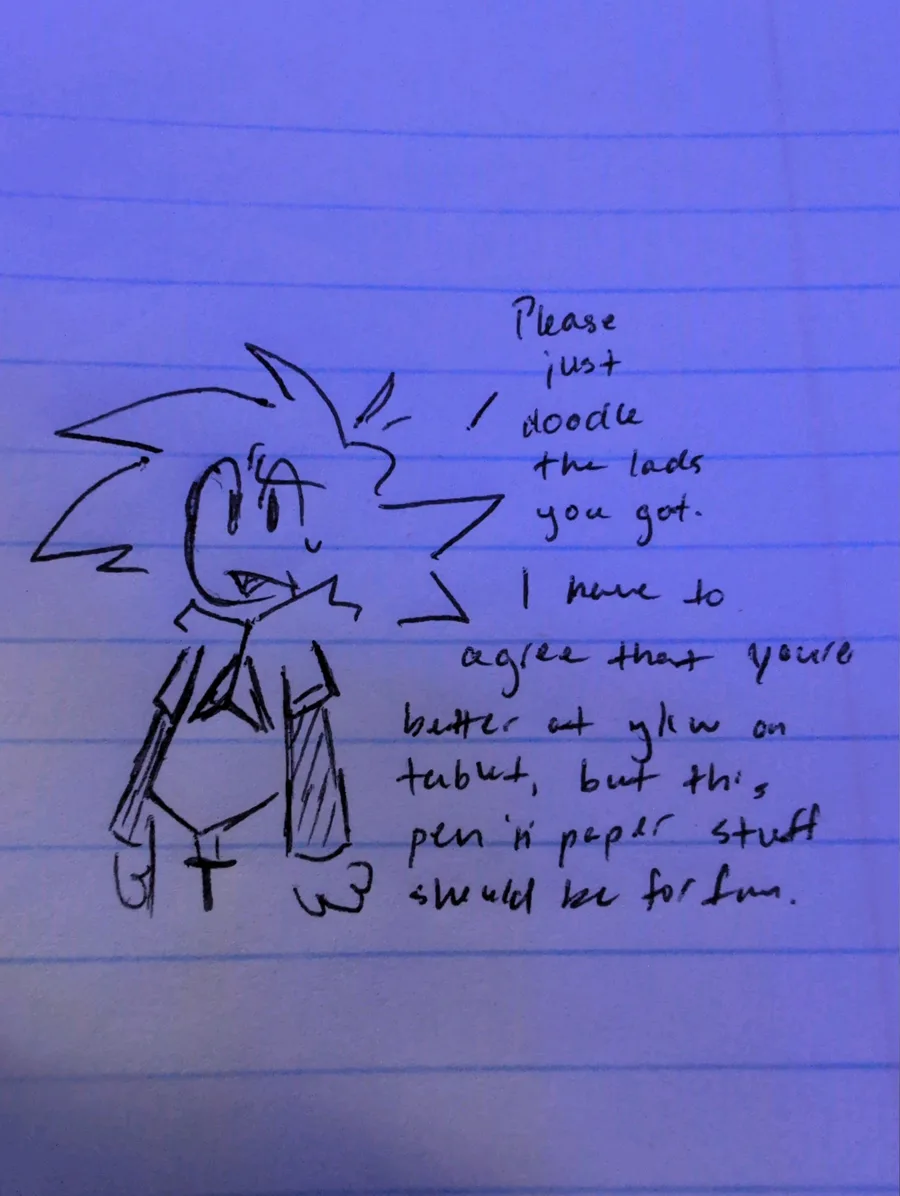 Please
just
doodle
the lads
you got.
I have to
agree that you're
better at on
tablet, but this
pen 'n' paper stuff
should be for fun.